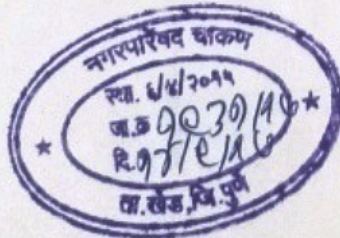 नगरपरिषद चाकण
स्था. ६/४/२०१५
जा.क्र १०३१/१७
दि. १४/८/१७
ता.खेड,जि.पुणे